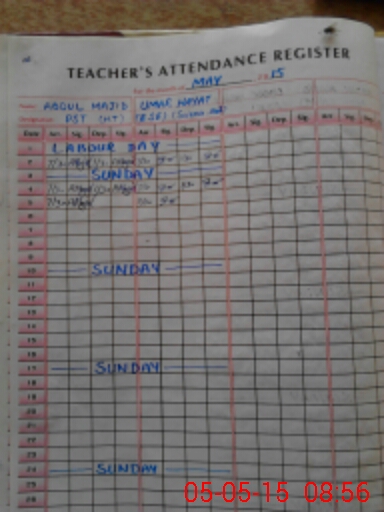 TEACHER'S ATTENDANCE REGISTER
For the month of MAY 2015
Name ABDUL MAJID UMAR HAYAT
Designation PST (HT)
Date Arr. Sig. Dep. Sig. Arr. Sig. Dep. Sig. Arr. Sig. Dep. Sig. Arr. Sig. Dep. Sig.
1 LABOUR DAY
2
3 SUNDAY
4
5
6
7
8
9
10 SUNDAY
11
12
13
14
15
16
17 SUNDAY
18
19
20
21
22
23
24 SUNDAY
25
26
05-05-15 08:56